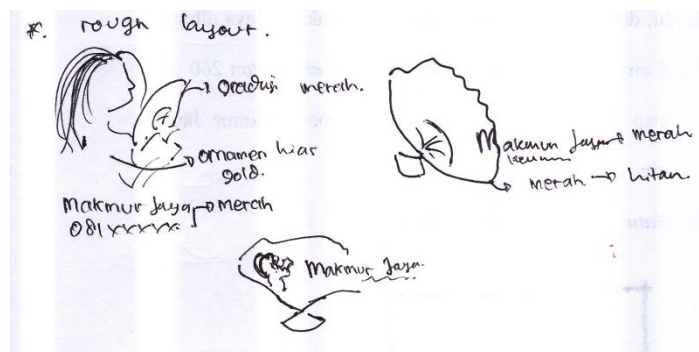 *. rough layout.
gradasi merah.
ornamen hias
gold.
Makmur Jaya → merah
081xxxxxx
Makmur Jaya → merah
merah → hitam
Makmur Jaya